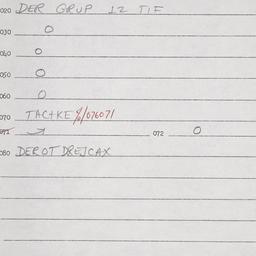 020 DER GRUP 12 TIF
030 0
040 0
050 0
060 0
070 TACAKE %/076071
071 072 0
080 DEROT DREJCAX